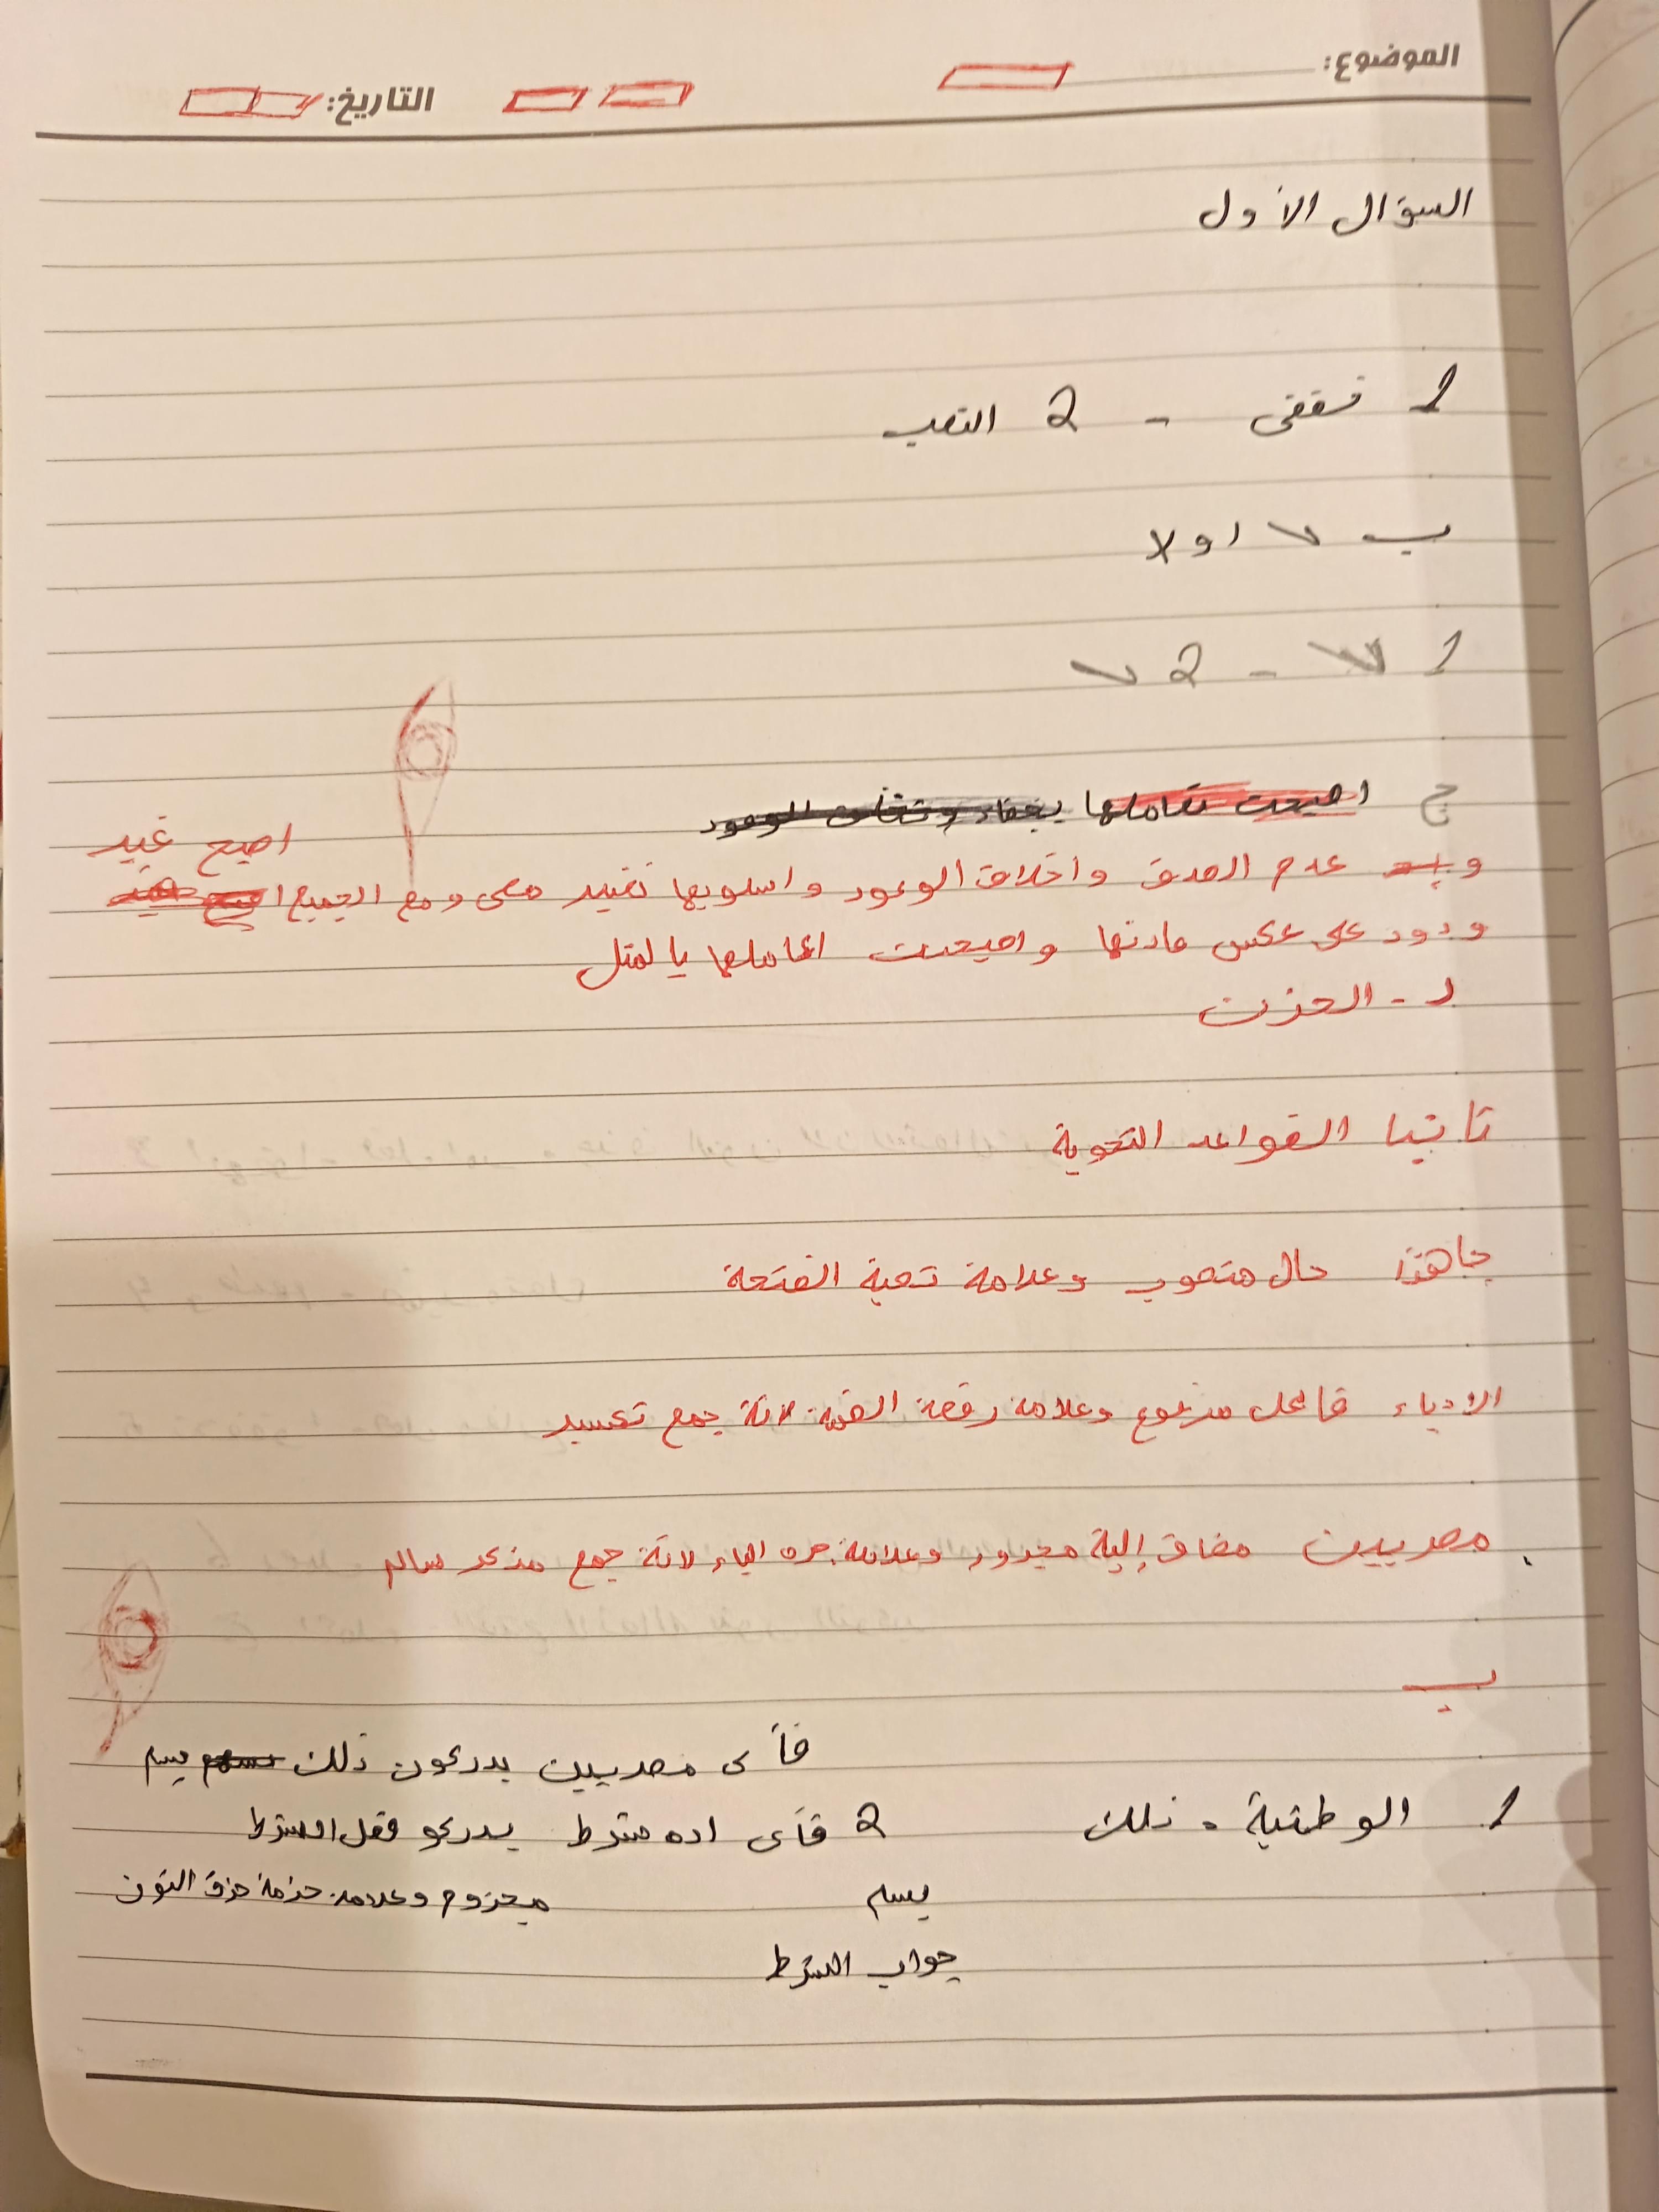 الموضوع:
التاريخ:
السؤال الأول
1 - 2 التعب
ب ✓ اولا
1 ✓ - 2 ✓
ج اصبحت تعاملها بجفاء وتخلف الوعود
اصبح غير
و عدم الصدق واخلاف الوعود واسلوبها تغير معى ومع الجميع
ودود على عكس عادتها واصبحت اعاملها بالمثل
د - الحزن
ثانيا القواعد النحوية
جاهدا حال منصوب وعلامة نصبة الفتحة
الادباء فاعل مرفوع وعلامة رفعة الضمة لانة جمع تكسير
مصريين مضاف إلية مجرور وعلامة جره الياء لانة جمع مذكر سالم
ب
فأى مصريين يدركون ذلك يسم
1 الوطنية . ذلك 2 فأى اده شرط يدركو فعل الشرط
يسم مجزوم وعلامة جزمة حذف النون
جواب الشرط